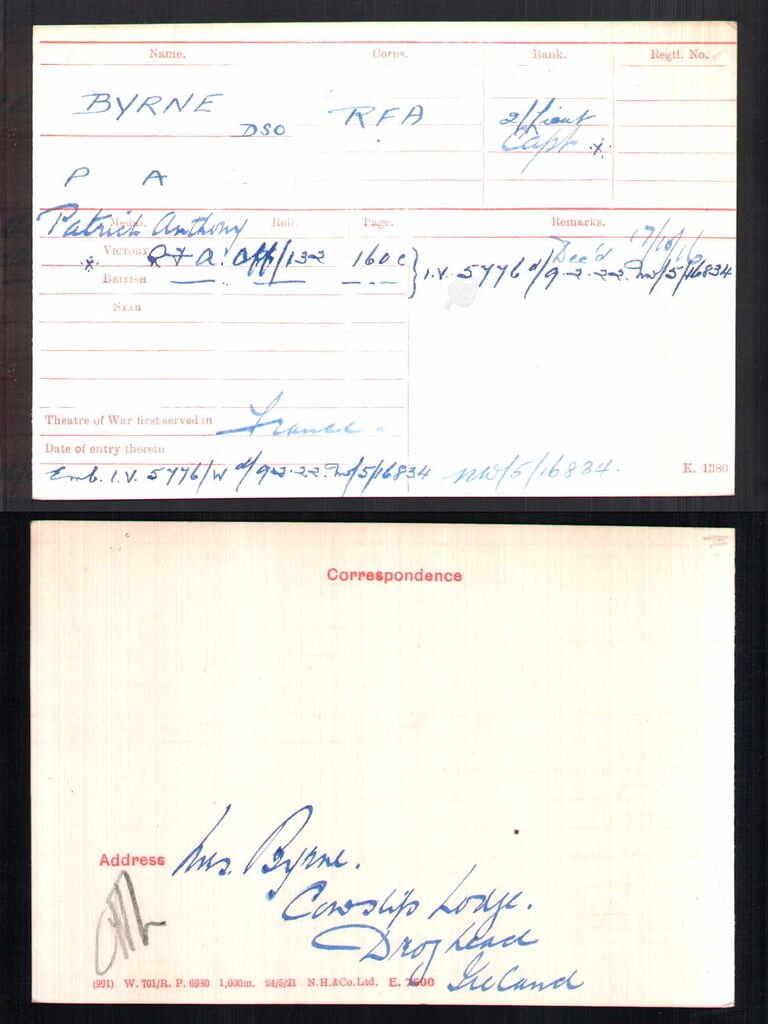 Name. Corps. Rank. Regtl. No.
BYRNE DSO RFA 2/Lieut
Capt *
P A
Patrick Anthony
Medal. Roll. Page. Remarks.
* Victory RFA Off/132 160c } I.V. 5776 d/9-2-22. NW/5/16834
Dec'd 17/10/16
British
Star
Theatre of War first served in France.
Date of entry therein
Emb. I.V. 5776/W d/9-2-22. NW/5/16834 NW/5/16834. K. 1380
Correspondence
Address Mrs. Byrne.
Cowslip Lodge.
Drogheda
Ireland
(991) W. 701/R. P. 6930 1,000m. 24/5/21 N.H.&Co.Ltd. E. 7600